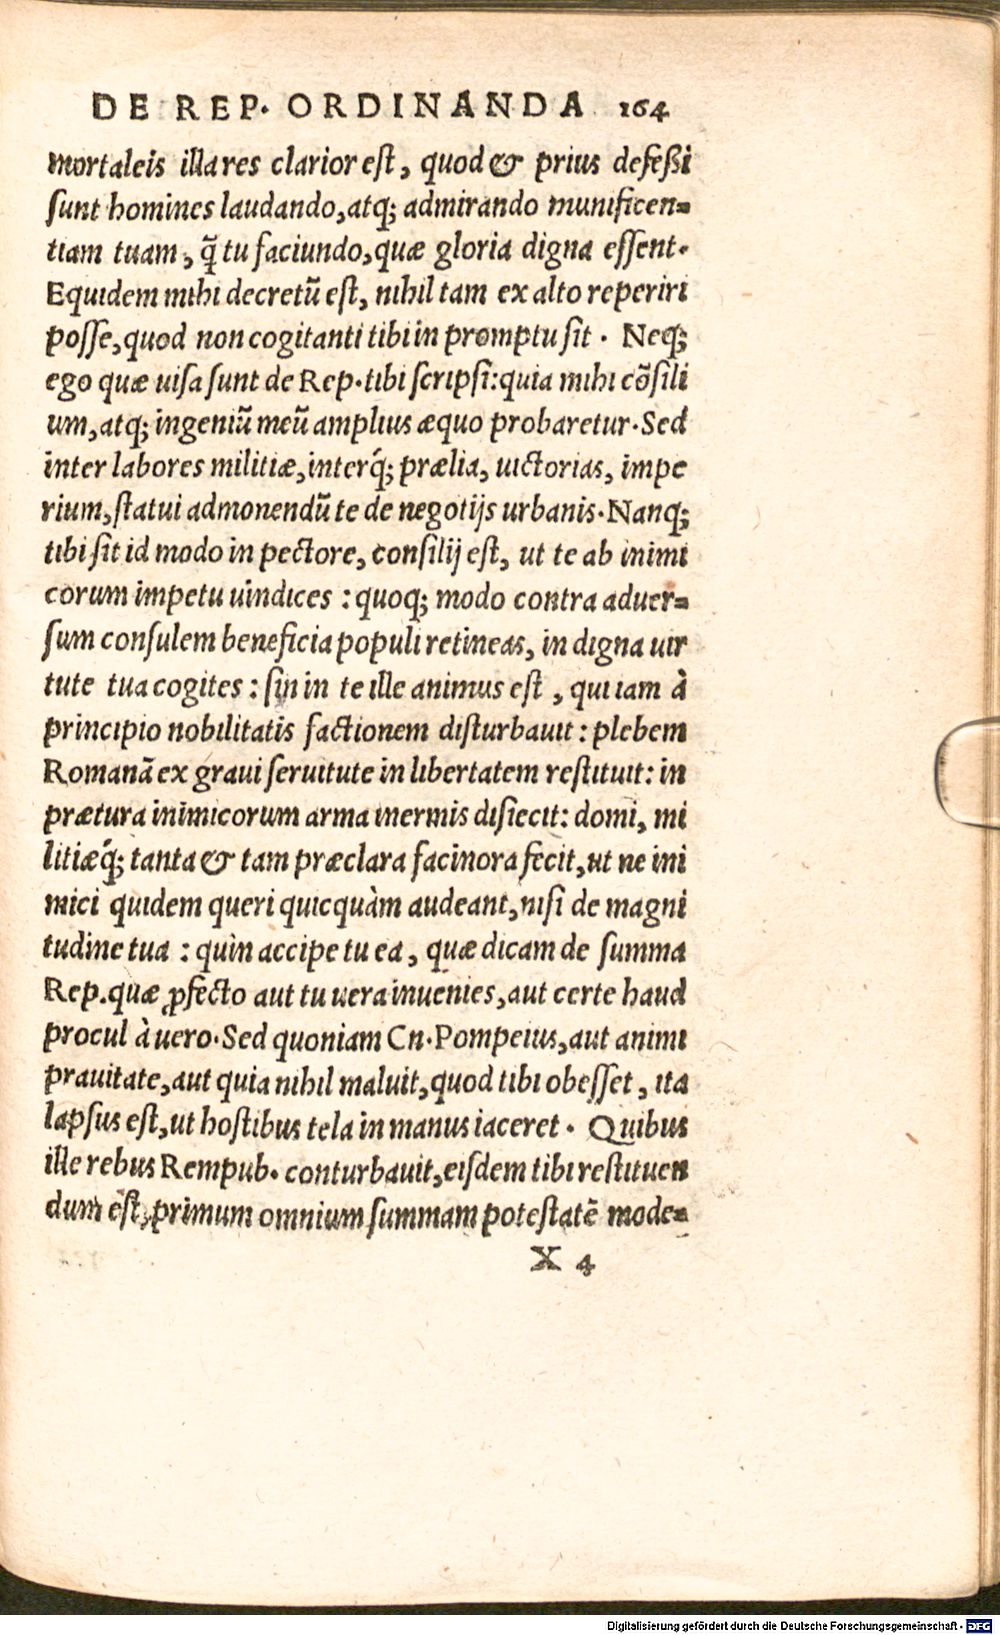 DE REP. ORDINANDA 164
mortaleis illa res clarior est, quod & prius defeßi
sunt homines laudando, atq; admirando munificen=
tiam tuam, q̃ tu faciundo, quæ gloria digna essent.
Equidem mihi decretũ est, nihil tam ex alto reperiri
posse, quod non cogitanti tibi in promptu sit. Neq;
ego quæ uisa sunt de Rep. tibi scripsi: quia mihi cõsili
um, atq; ingeniũ meũ amplius æquo probaretur. Sed
inter labores militiæ, interq́; prælia, uictorias, impe
rium, statui admonendũ te de negotijs urbanis. Nanq;
tibi sit id modo in pectore, consilij est, ut te ab inimi
corum impetu uindices: quoq; modo contra aduer=
sum consulem beneficia populi retineas, in digna uir
tute tua cogites: sin in te ille animus est, qui iam à
principio nobilitatis factionem disturbauit: plebem
Romanã ex graui seruitute in libertatem restituit: in
prætura inimicorum arma inermis disiecit: domi, mi
litiæq́; tanta & tam præclara facinora fecit, ut ne ini
mici quidem queri quicquàm audeant, nisi de magni
tudine tua: quin accipe tu ea, quæ dicam de summa
Rep. quæ ꝓfecto aut tu uera inuenies, aut certe haud
procul à uero. Sed quoniam Cn. Pompeius, aut animi
prauitate, aut quia nihil maluit, quod tibi obesset, ita
lapsus est, ut hostibus tela in manus iaceret. Quibus
ille rebus Rempub. conturbauit, eisdem tibi restituen
dum est, primum omnium summam potestatẽ mode=
X 4
Digitalisierung gefördert durch die Deutsche Forschungsgemeinschaft - DFG